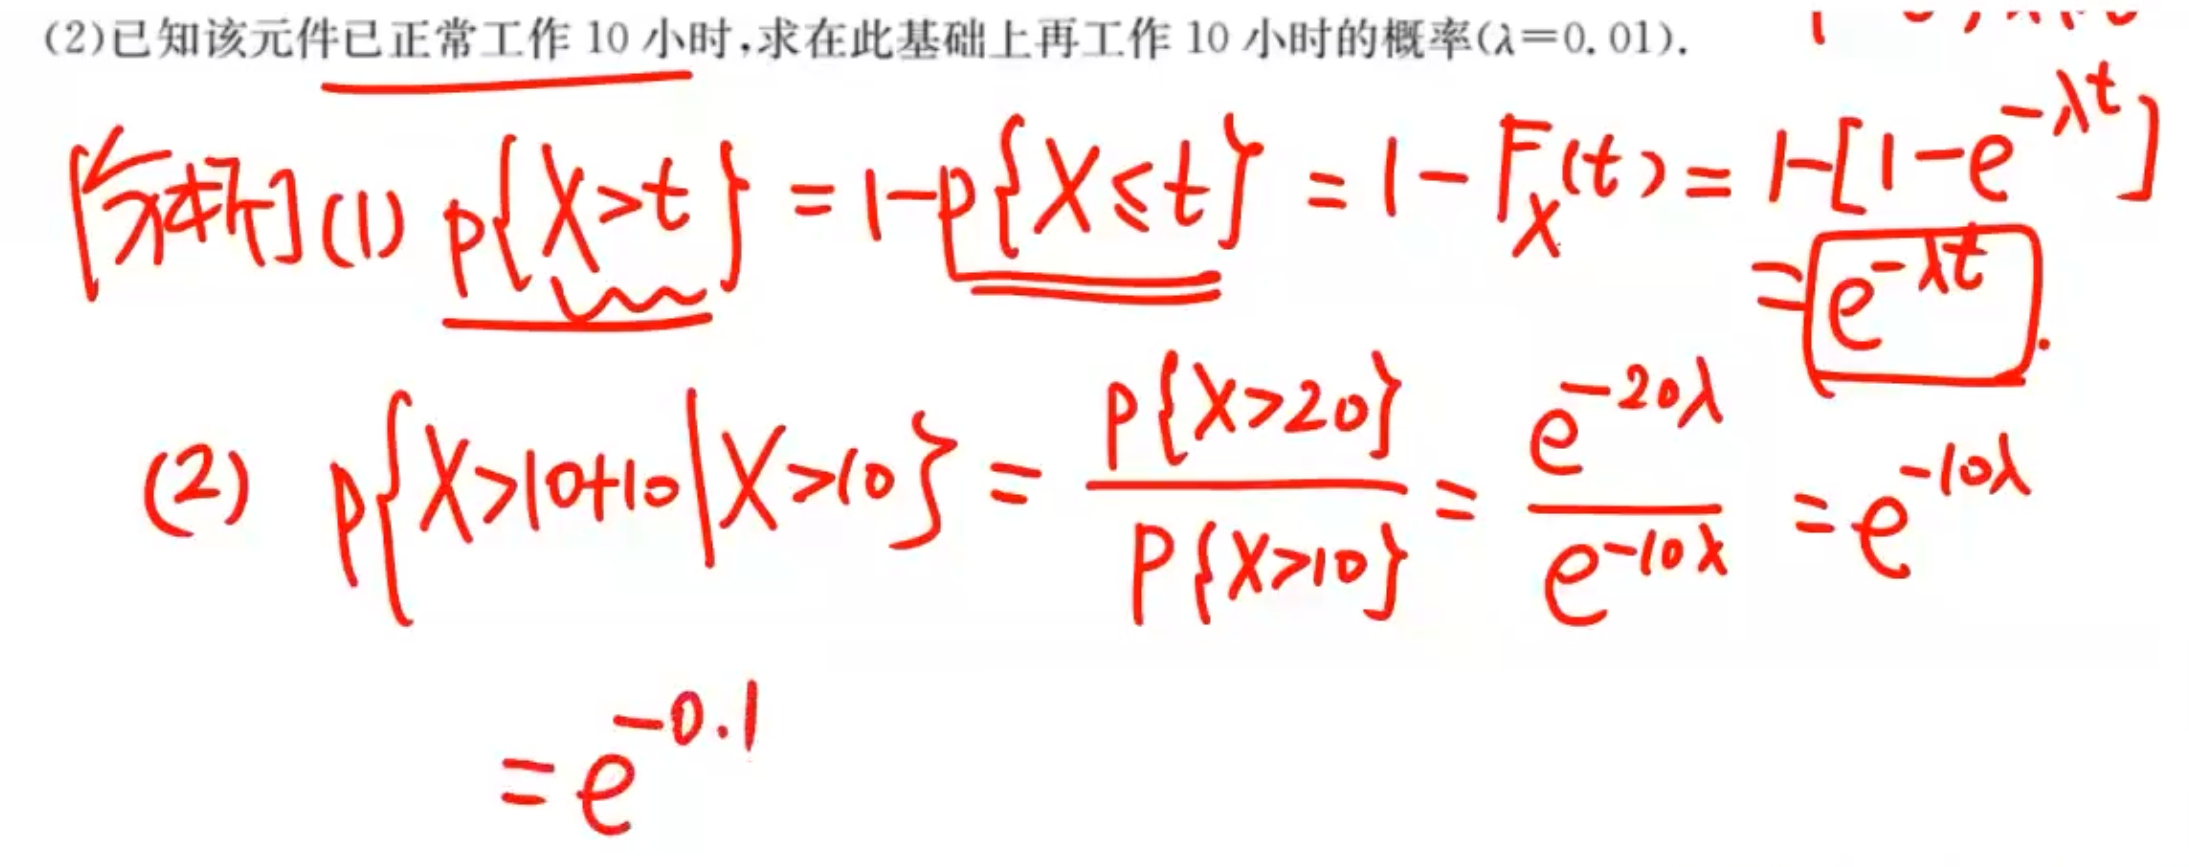 (2)已知该元件已正常工作 10 小时,求在此基础上再工作 10 小时的概率(λ=0.01).
[分析](1) P{X>t} = 1-P{X≤t} = 1-F_X(t) = 1-[1-e^{-λt}]
= e^{-λt}.
(2) P{X>10+10|X>10} = P{X>20} / P{X>10} = e^{-20λ} / e^{-10λ} = e^{-10λ}
= e^{-0.1}